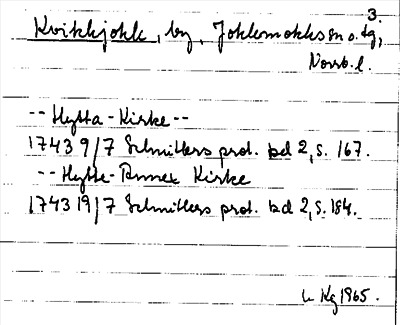 3.
Kvikkjokk, by, Jokkmokks sn o. tg,
Norrb. l.
-- Hytta-Kirke --
1743 9/7 Schnitlers prot. bd 2, s. 167.
-- Hytte-Annex Kirke
1743 19/7 Schnitlers prot. bd 2, s. 184.
Kg 1965.